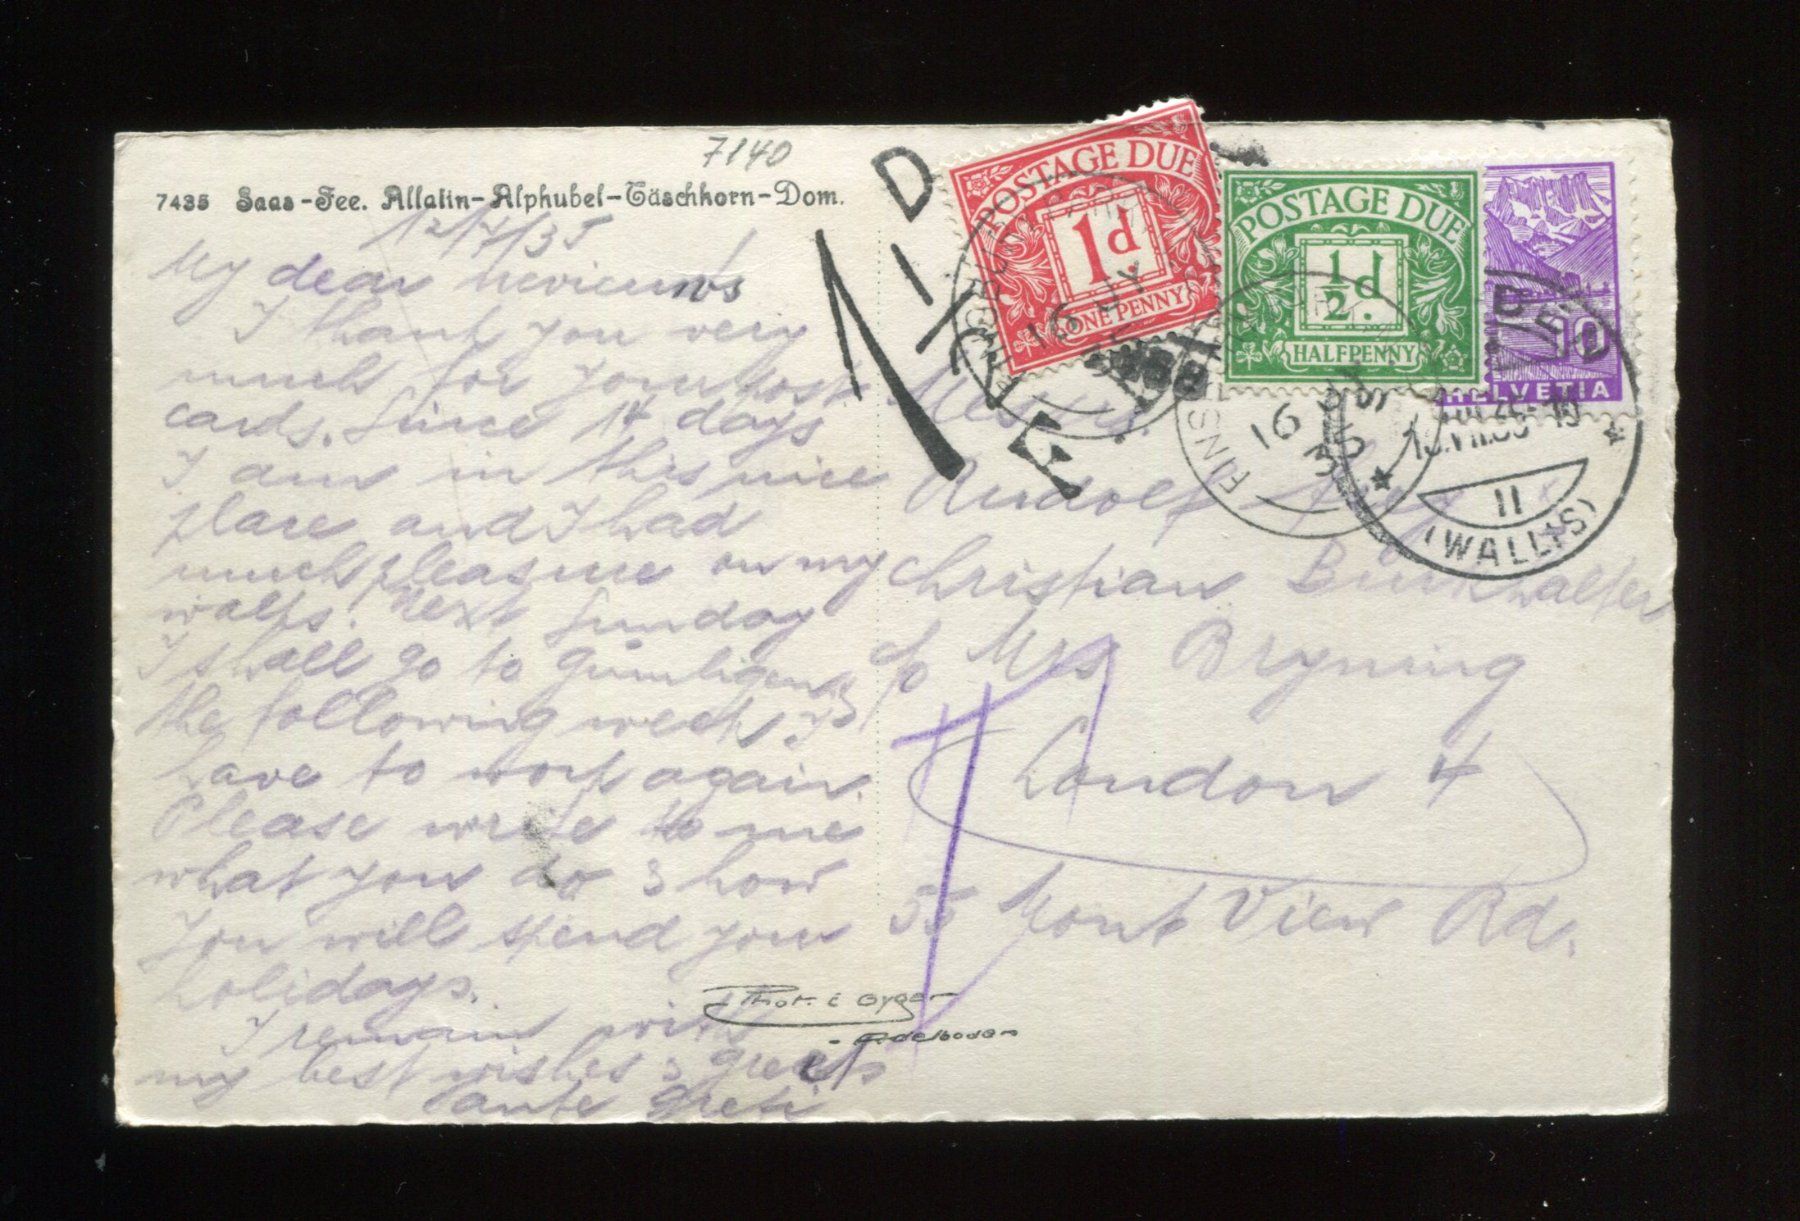 7140
7435 Saas-Fee. Allalin-Alphubel-Täschhorn-Dom.
12/7/35
My dear
I thank you very
much for your post
cards. Since 14 days
I am in this nice
place and I had
much pleasure on my
walks. Next Sunday
I shall go to Gümligen &
the following week I
have to work again.
Please write to me
what you do & how
you will spend your
holidays.
I remain with
my best wishes & greets
Tante Greti
Phot. E Gyger
Adelboden
POSTAGE DUE
1d
ONE PENNY
POSTAGE DUE
½d.
HALFPENNY
10
HELVETIA
16 JY
FINS
16 JY
35
II
(WALLIS)
Messrs.
Rudolf
Christian Burkhalter
c/o Mrs Bryning
London 4
55 Mont View Rd.
T